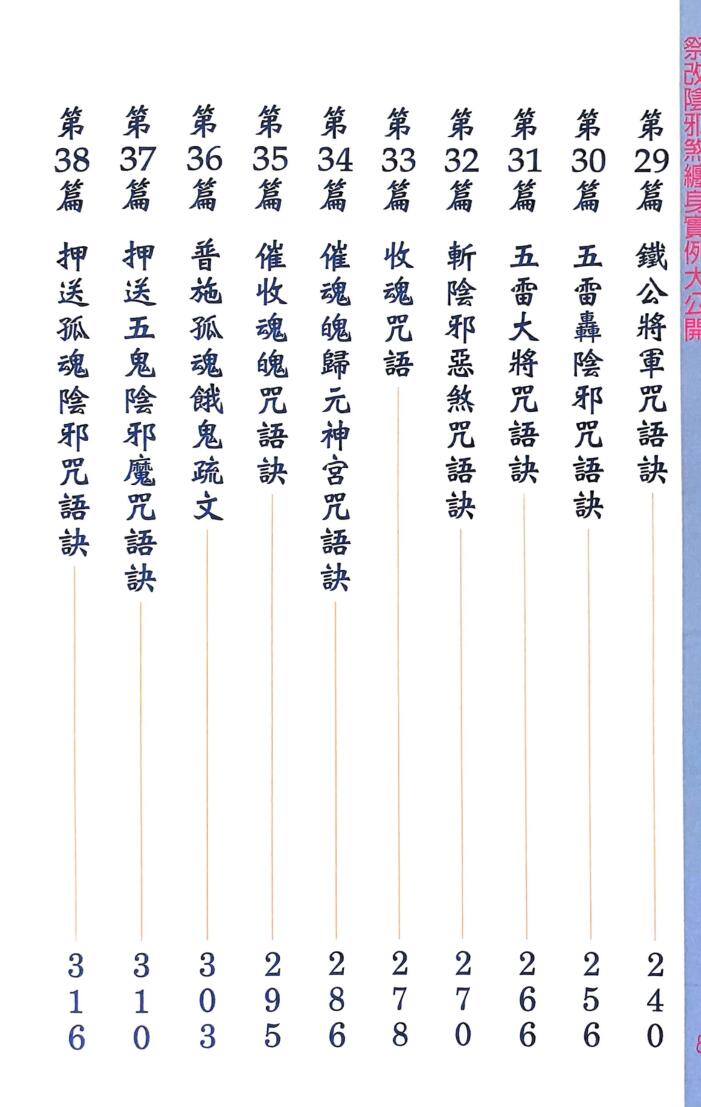 祭改陰邪煞纏身實例大公開
第29篇 鐵公將軍咒語訣 240
第30篇 五雷轟陰邪咒語訣 256
第31篇 五雷大將咒語訣 266
第32篇 斬陰邪惡煞咒語訣 270
第33篇 收魂咒語 278
第34篇 催魂魄歸元神宮咒語訣 286
第35篇 催收魂魄咒語訣 295
第36篇 普施孤魂餓鬼疏文 303
第37篇 押送五鬼陰邪魔咒語訣 310
第38篇 押送孤魂陰邪咒語訣 316